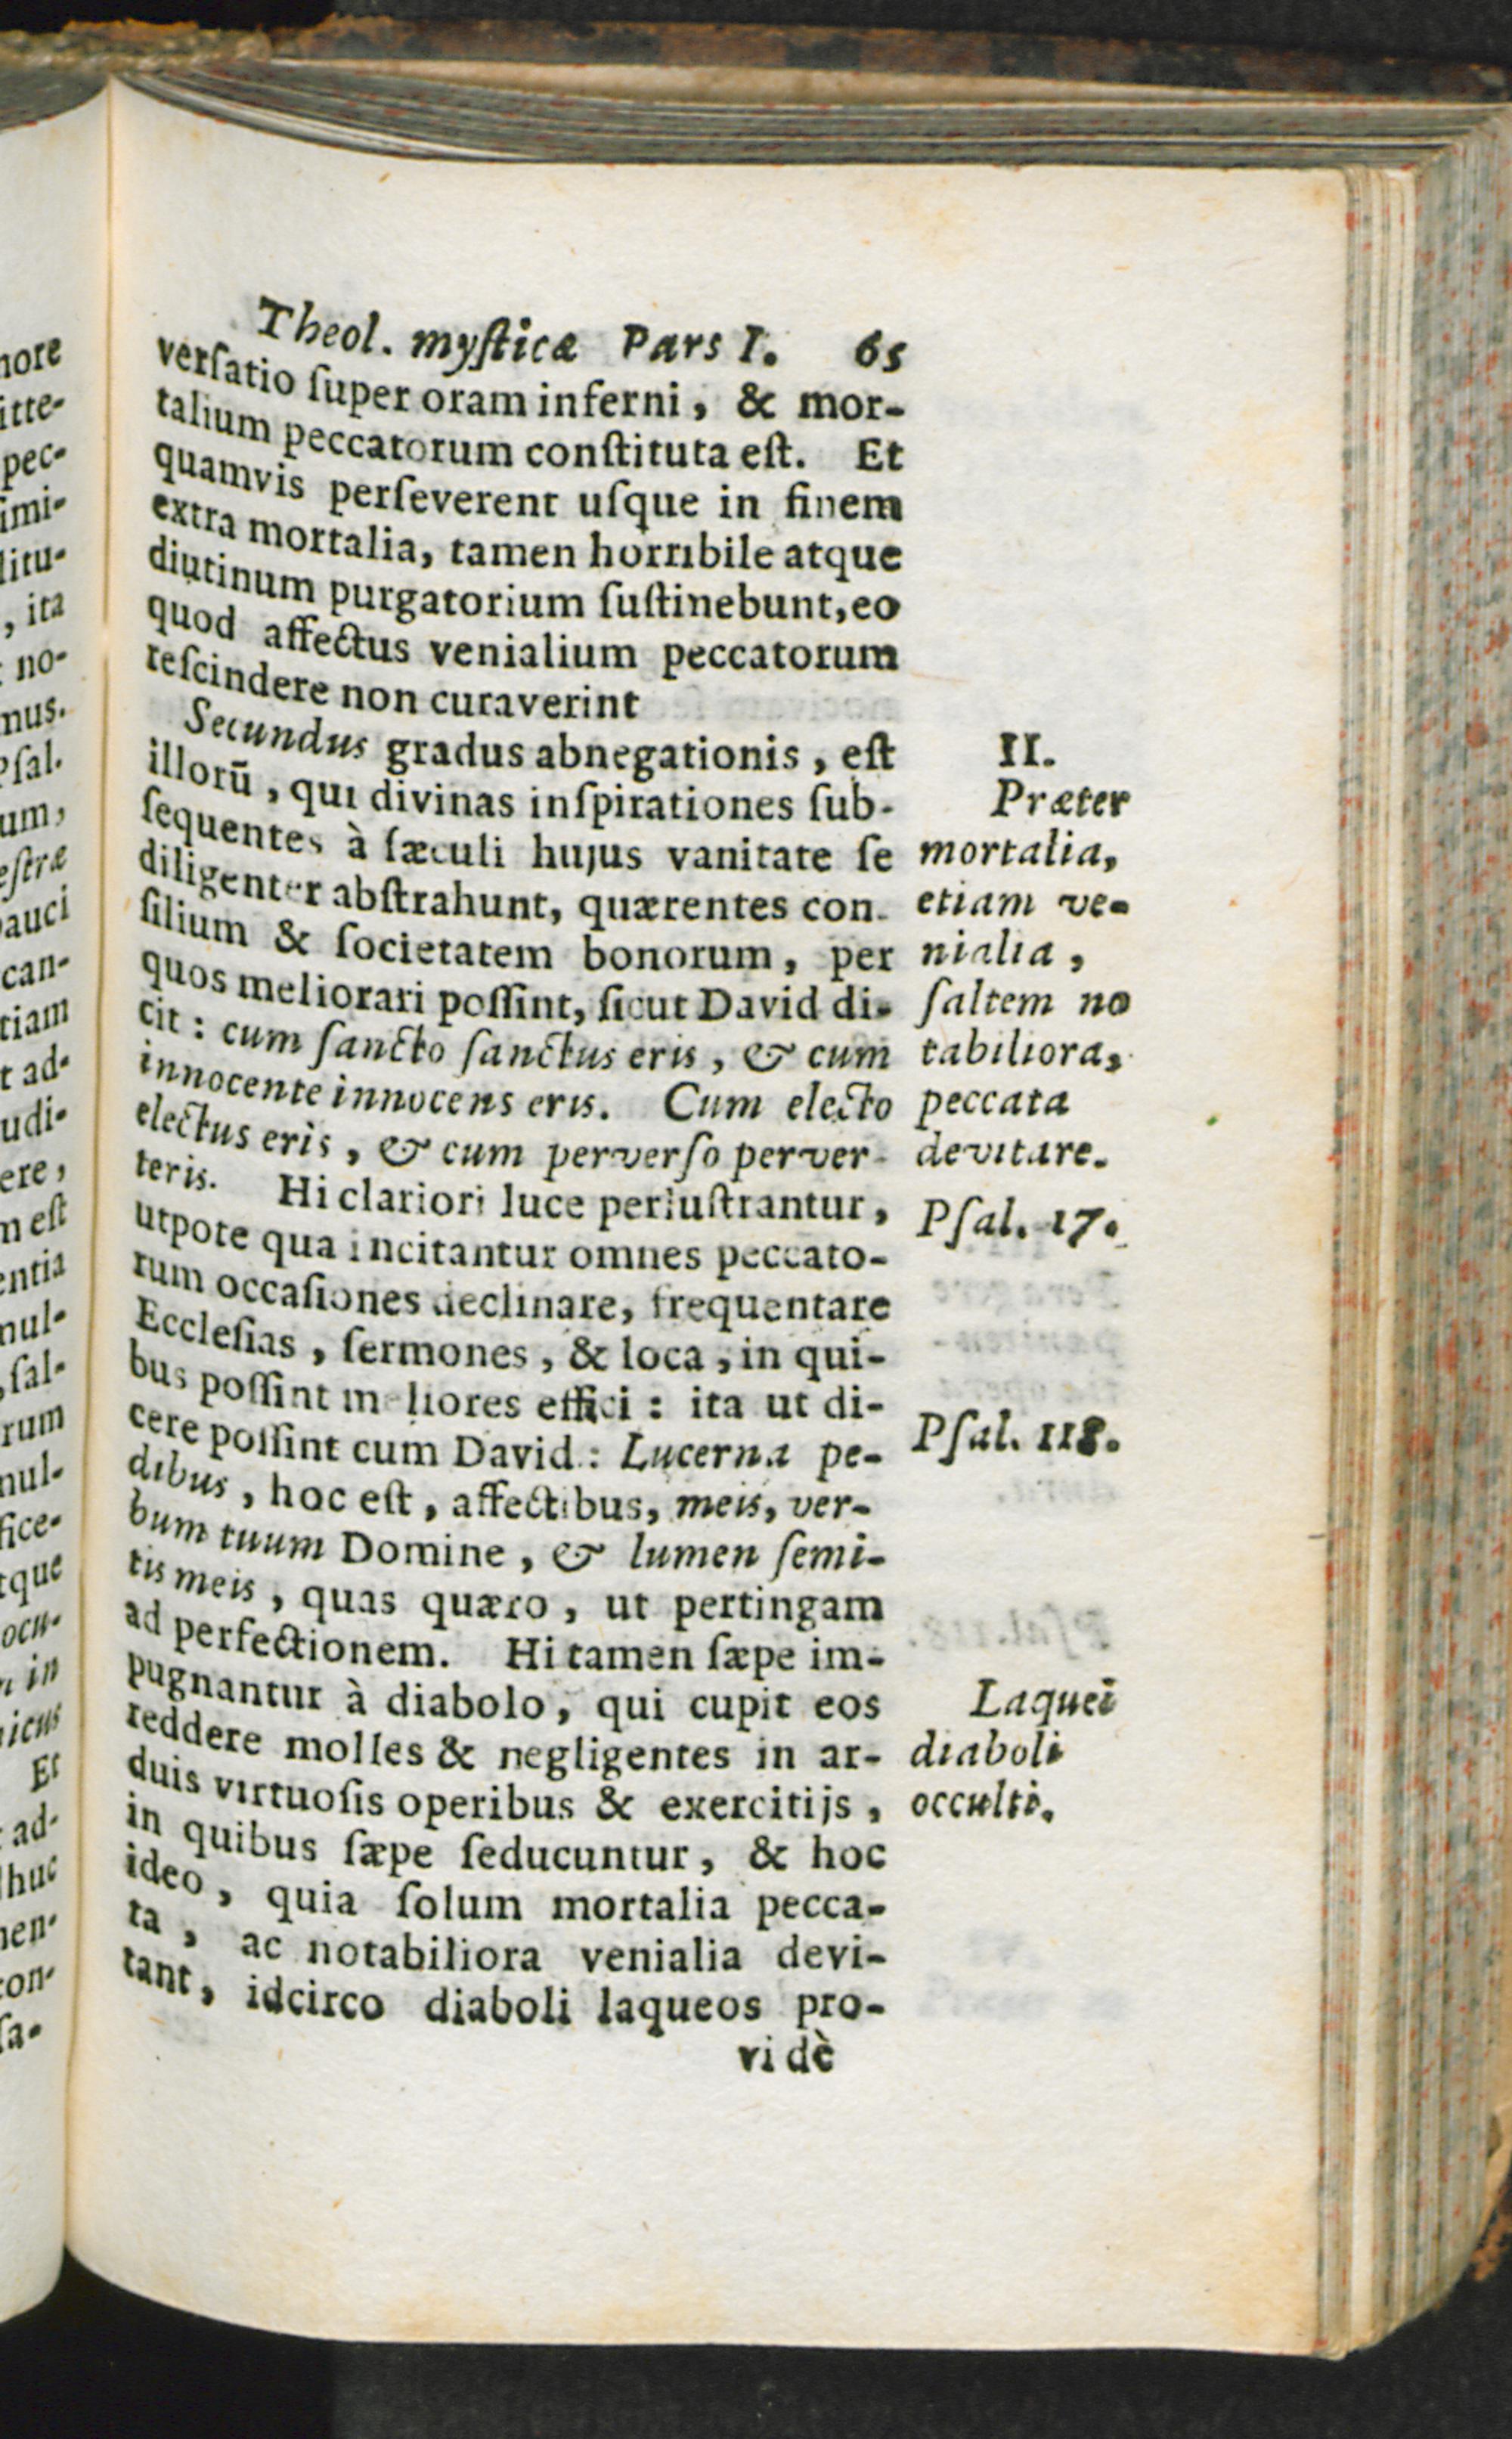 Theol. mysticæ Pars I. 65
verſatio ſuper oram inferni, & mor-
talium peccatorum conſtituta eſt. Et
quamvis perſeverent uſque in finem
extra mortalia, tamen horribile atque
diutinum purgatorium ſuſtinebunt, eo
quod affectus venialium peccatorum
reſcindere non curaverint
Secundus gradus abnegationis, eſt
illorū, qui divinas inſpirationes ſub-
ſequentes à ſæculi hujus vanitate ſe
diligenter abſtrahunt, quærentes con-
ſilium & ſocietatem bonorum, per
quos meliorari poſſint, ſicut David di-
cit: cum ſancto ſanctus eris, & cum
innocente innocens eris. Cum electo
electus eris, & cum perverſo perver-
teris. Hi clariori luce perluſtrantur,
utpote qua incitantur omnes peccato-
rum occaſiones declinare, frequentare
Eccleſias, ſermones, & loca, in qui-
bus poſſint meliores effici: ita ut di-
cere poſſint cum David: Lucerna pe-
dibus, hoc eſt, affectibus, meis, ver-
bum tuum Domine, & lumen ſemi-
tis meis, quas quæro, ut pertingam
ad perfectionem. Hi tamen ſæpe im-
pugnantur à diabolo, qui cupit eos
reddere molles & negligentes in ar-
duis virtuoſis operibus & exercitijs,
in quibus ſæpe ſeducuntur, & hoc
ideo, quia ſolum mortalia pecca-
ta, ac notabiliora venialia devi-
tant, idcirco diaboli laqueos pro-
vidè
II.
Præter
mortalia,
etiam ve-
nialia,
ſaltem no
tabiliora,
peccata
devitare.
Pſal. 17.
Pſal. 118.
Laquei
diaboli
occulti.